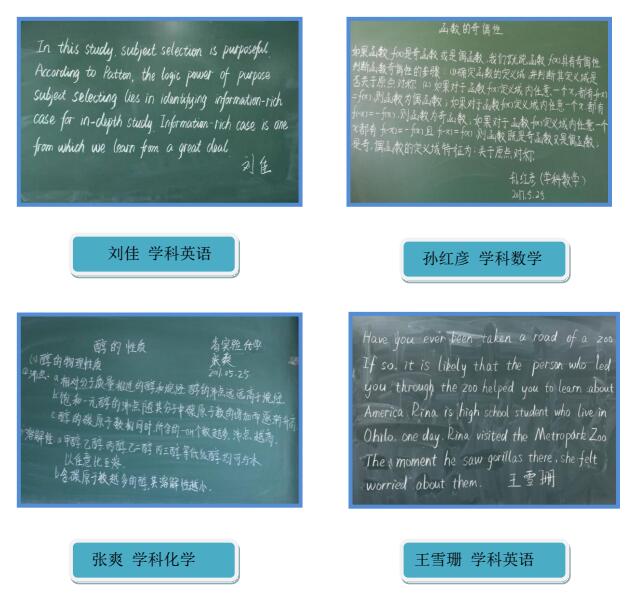 In this study, subject selection is purposeful.
According to Patton, the logic power of purpose
subject selecting lies in identifying information-rich
case for in-depth study. Information-rich case is one
from which we learn from a great deal.
刘佳
刘佳 学科英语
函数的奇偶性
如果函数f(x)是奇函数或是偶函数,我们就说函数f(x)具有奇偶性
判断函数奇偶性的步骤:(1)确定函数的定义域,并判断其定义域是
否关于原点对称.(2)如果对于函数f(x)定义域内任意一个x,都有f(-x)
=f(x),则函数为偶函数;如果对于函数f(x)定义域内任意一个x都有
f(-x)=-f(x),则函数为奇函数,如果对于函数f(x)定义域内任意一个
x都有f(-x)=-f(x)且f(-x)=f(x),则函数既是奇函数又是偶函数,
是奇、偶函数的定义域特征为:关于原点对称.
孙红彦(学科数学)
2017.5.25
孙红彦 学科数学
醇的性质
学科化学
张爽
2017.05.25
(1)醇的物理性质
沸点:a.相对分子质量相近的醇和烷烃,醇的沸点远远高于烷烃
b.饱和一元醇的沸点随其分子中碳原子数的增加而逐渐升高
c.醇的碳原子数相同时,所含的-OH个数越多,沸点越高.
溶解性:a.甲醇、乙醇、丙醇、乙二醇、丙三醇等低级醇均可与水
以任意比互溶
b.含碳原子数越多的醇,其溶解性越小.
张爽 学科化学
Have you ever been taken a road of a zoo
If so, it is likely that the person who led
you through the zoo helped you to learn about
America. Rina is high school student who live in
Ohilo. one day, Rina visited the Metropark Zoo
The moment he saw gorillas there, she felt
worried about them. 王雪珊
王雪珊 学科英语